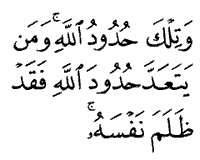 وَتِلْكَ حُدُودُ ٱللَّهِۚ وَمَن
يَتَعَدَّ حُدُودَ ٱللَّهِ فَقَدْ
ظَلَمَ نَفْسَهُۥۚ